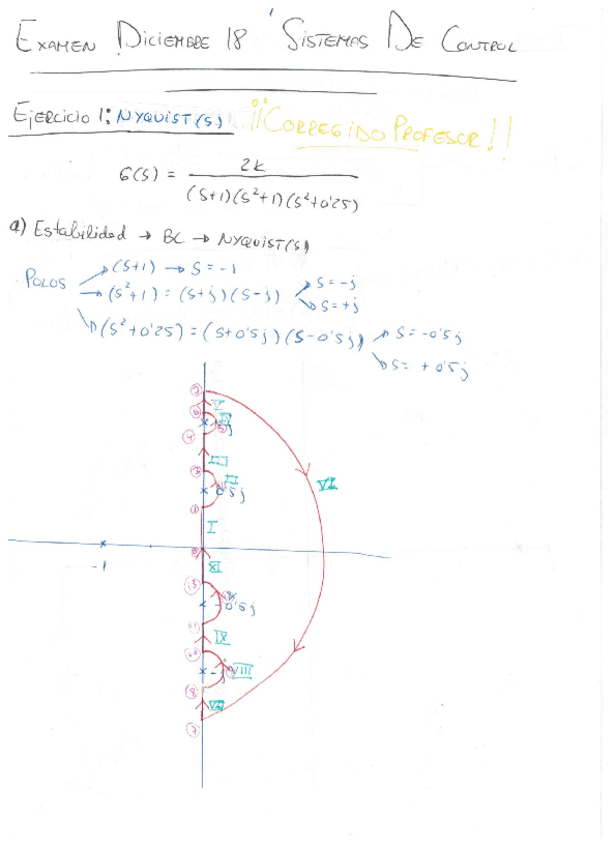 EXAMEN DICIEMBRE 18 SISTEMAS DE CONTROL
EJERCICIO 1: NYQUIST(S) ¡¡CORREGIDO PROFESOR!!
G(S) = 2K / (S+1)(S²+1)(S²+0'25)
a) Estabilidad → BC → NYQUIST(S)
POLOS → (S+1) → S = -1
→ (S²+1) = (S+j)(S-j) → S = -j
→ S = +j
→ (S²+0'25) = (S+0'5j)(S-0'5j) → S = -0'5j
→ S = +0'5j
V
IV
j
III
II
VI
0'5j
I
-1
XI
-0'5j
IX
-j VIII
VII